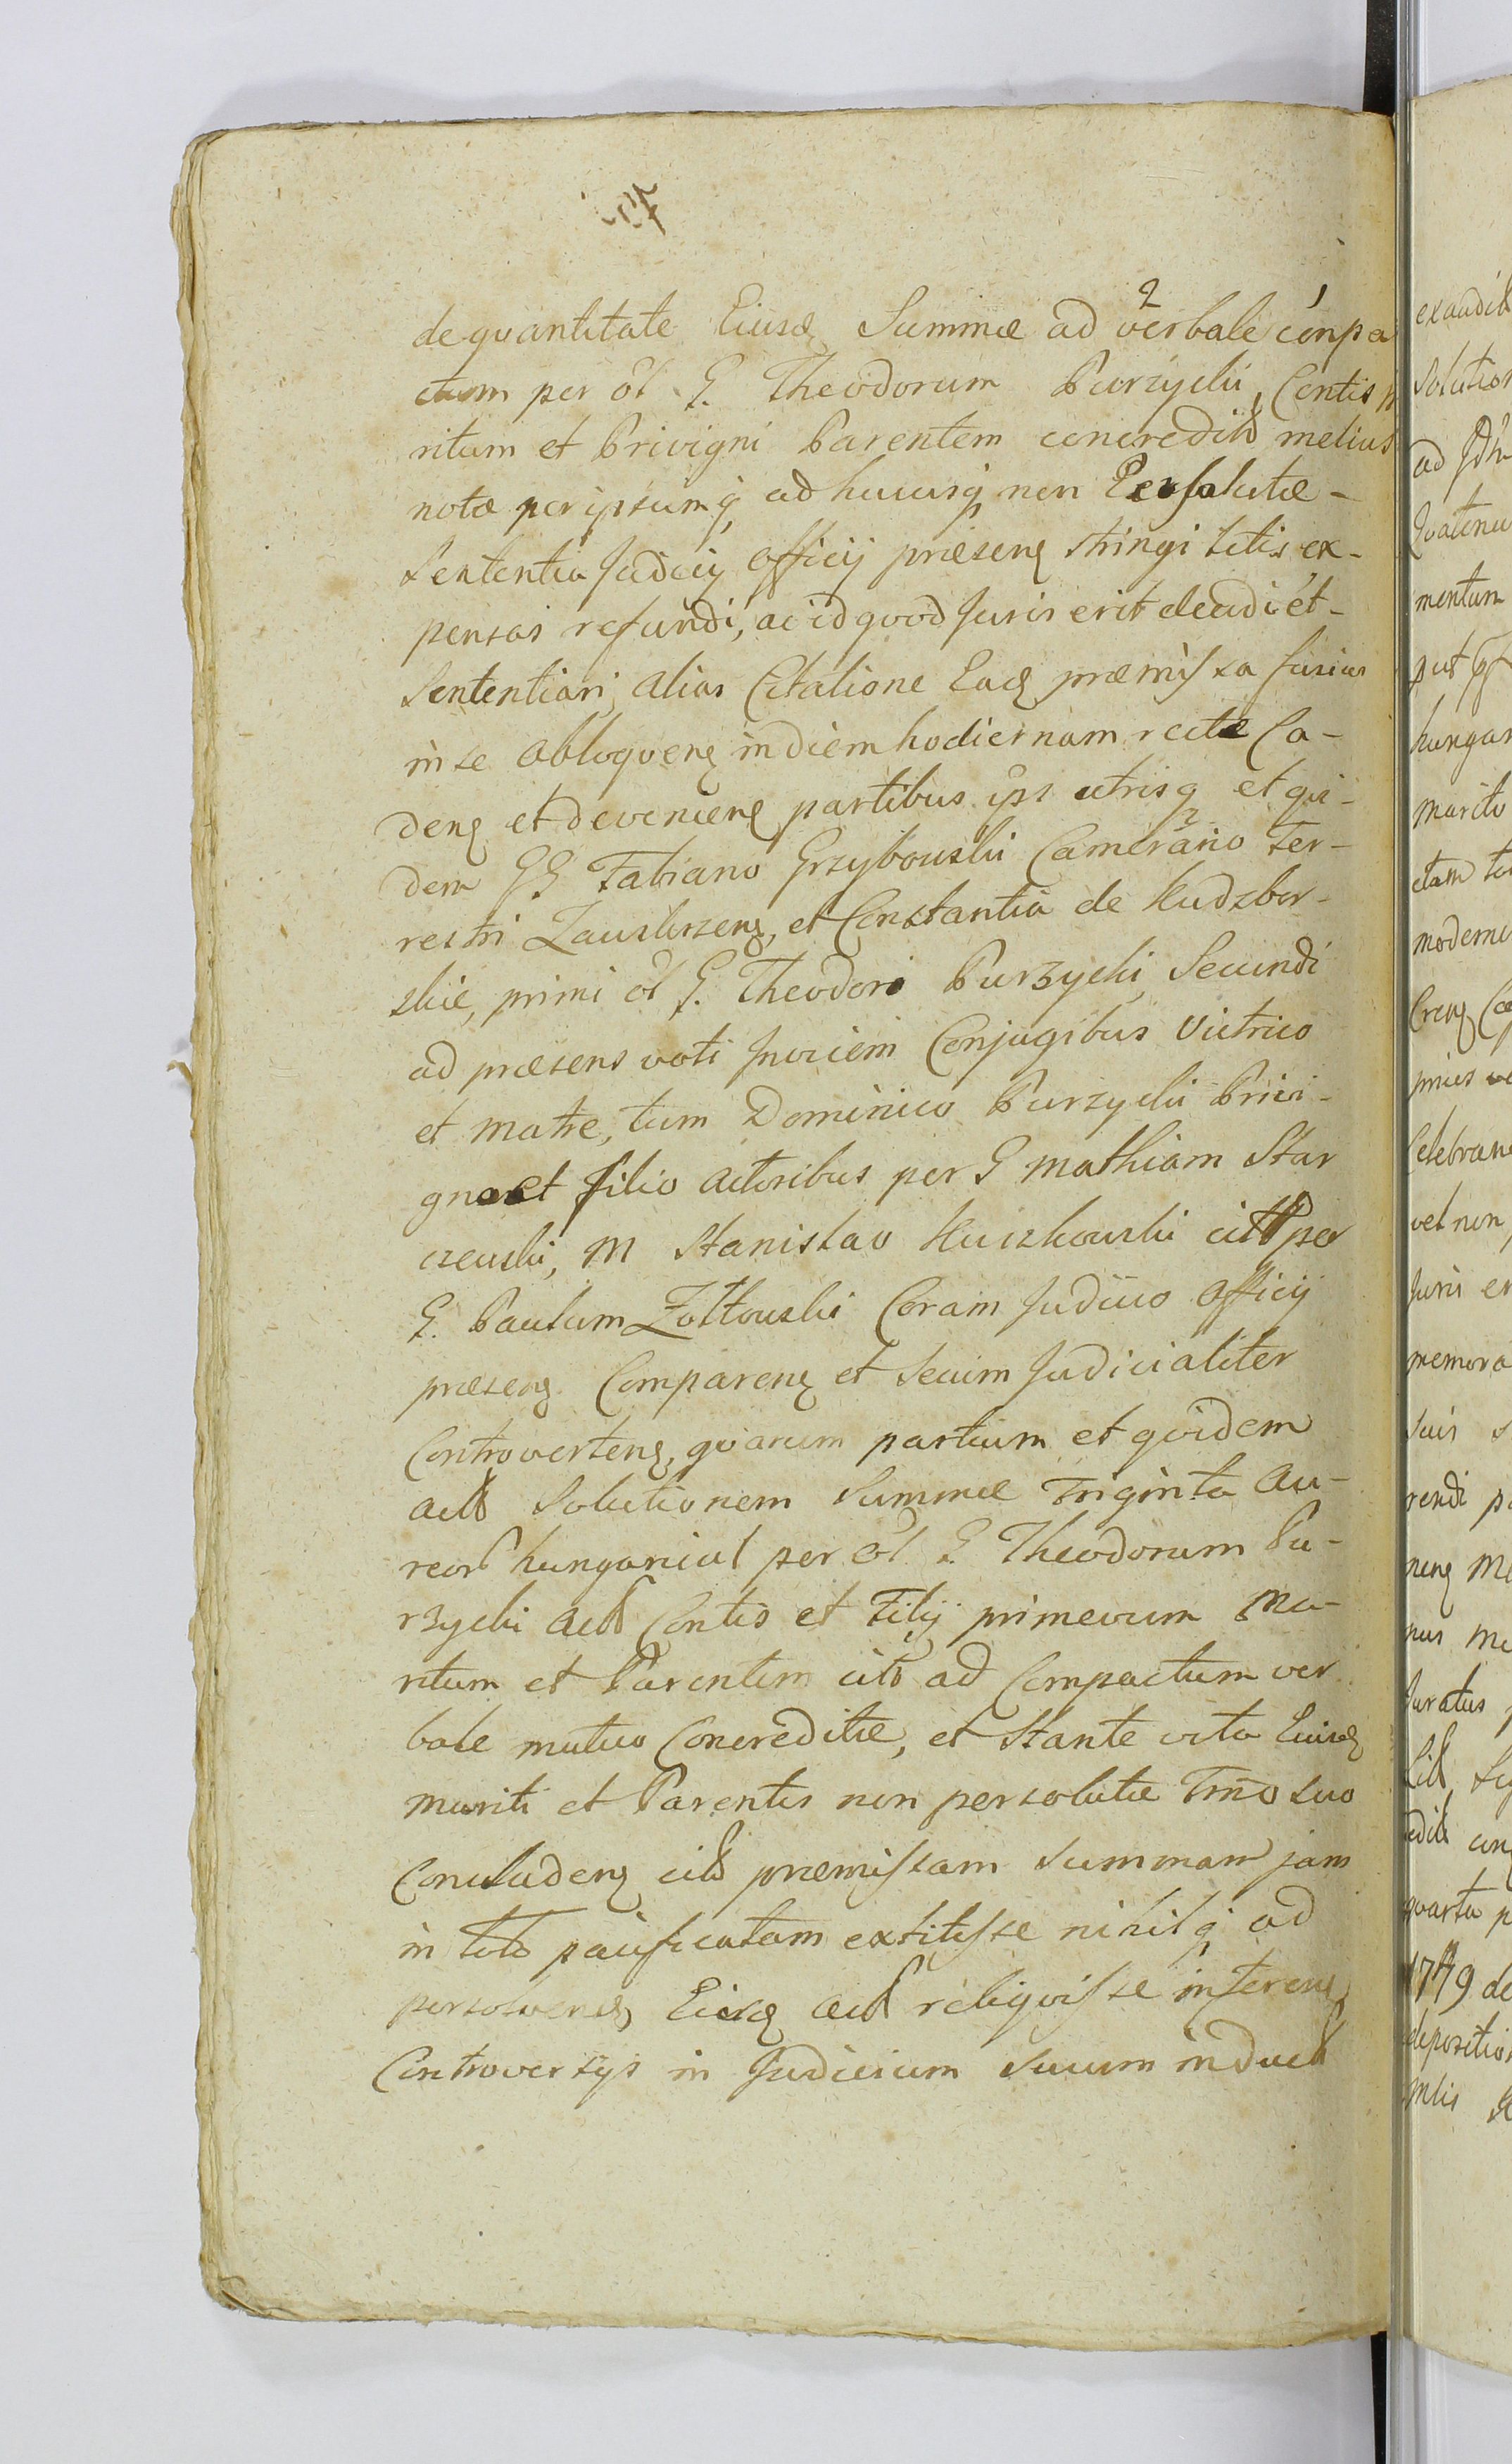 de quantitate Eiusđ Summæ ad verbale conpa
ctum per ol G. Theodorum Purzycki, Contis
ritum et Privigni Parentem concredit melius
notæ per ipsumq adhucusq non Persolutæ -
Sententia Judicij officij præsenȝ stringi litis ex-
pensas refundi, ac id quod Juris erit decidi et -
Sententiari, alias Citatione Eadȝ præmissa fusius
in se obloquenȝ in diem hodiernam recte Ca-
denȝ et devenienȝ partibus ipsis utrisq et qui-
dem GG Fabiano Grzybowski Camerario Ter-
restri Zauskrzenȝ, et Constantia de Kudzbor-
skie, primi ol G. Theodori Purzycki Secundi
ad præsens voti Invicem Conjugibus Vitrico
et Matre, tum Dominico Purzycki Privi-
gno et filio actoribus per G Mathiam Star
czewski, M Stanislao Kuczkowski citt per
G. Paulum Żółtowski Coram Judicio officij
præsenȝ Comparenȝ et Secum Judicialiter
Controvertenȝ, quarum partium et quidem
act Solutionem Summæ Triginta Au-
reor hungarical per ol G. Theodorum Pu-
rzycki act Contis et Filij primevum Ma-
ritum et Parentem cito ad Compactum ver
bale mutuo Concreditæ, et Stante vita Eiusđ
mariti et Parentis non persolutæ Tmo suo
Concludenȝ cito præmissam Summam jam
in toto pacificatam extitisse nihilq ad
persolvenđ Eisđ act reliquisse inferenȝ
Controversijs in Judicium Suum induct
exaudit
solution
ad
Quatenu
mentum
put
hungar
marito
etam
moderni
prius
Celebran
vel non
Juris er
memora
suis
rendi
nenȝ
nus
Juratus
quarta
1779 de
deposition